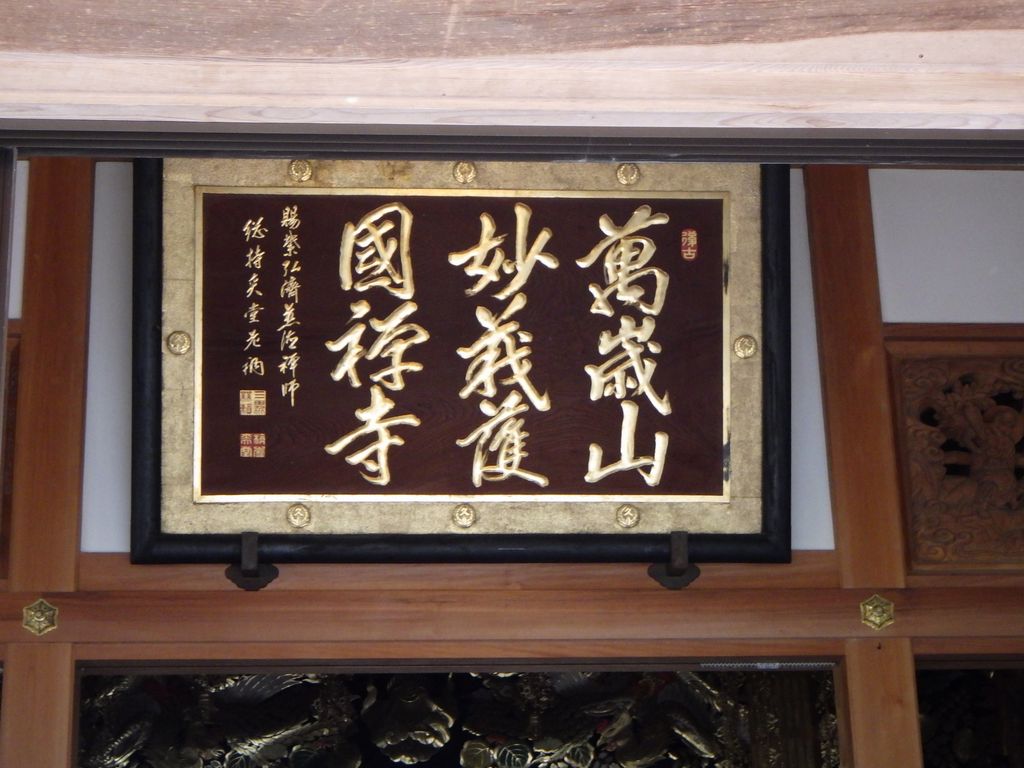 萬歳山
妙義護
國禅寺
賜紫弘濟慈德禅師
総持奕堂老衲